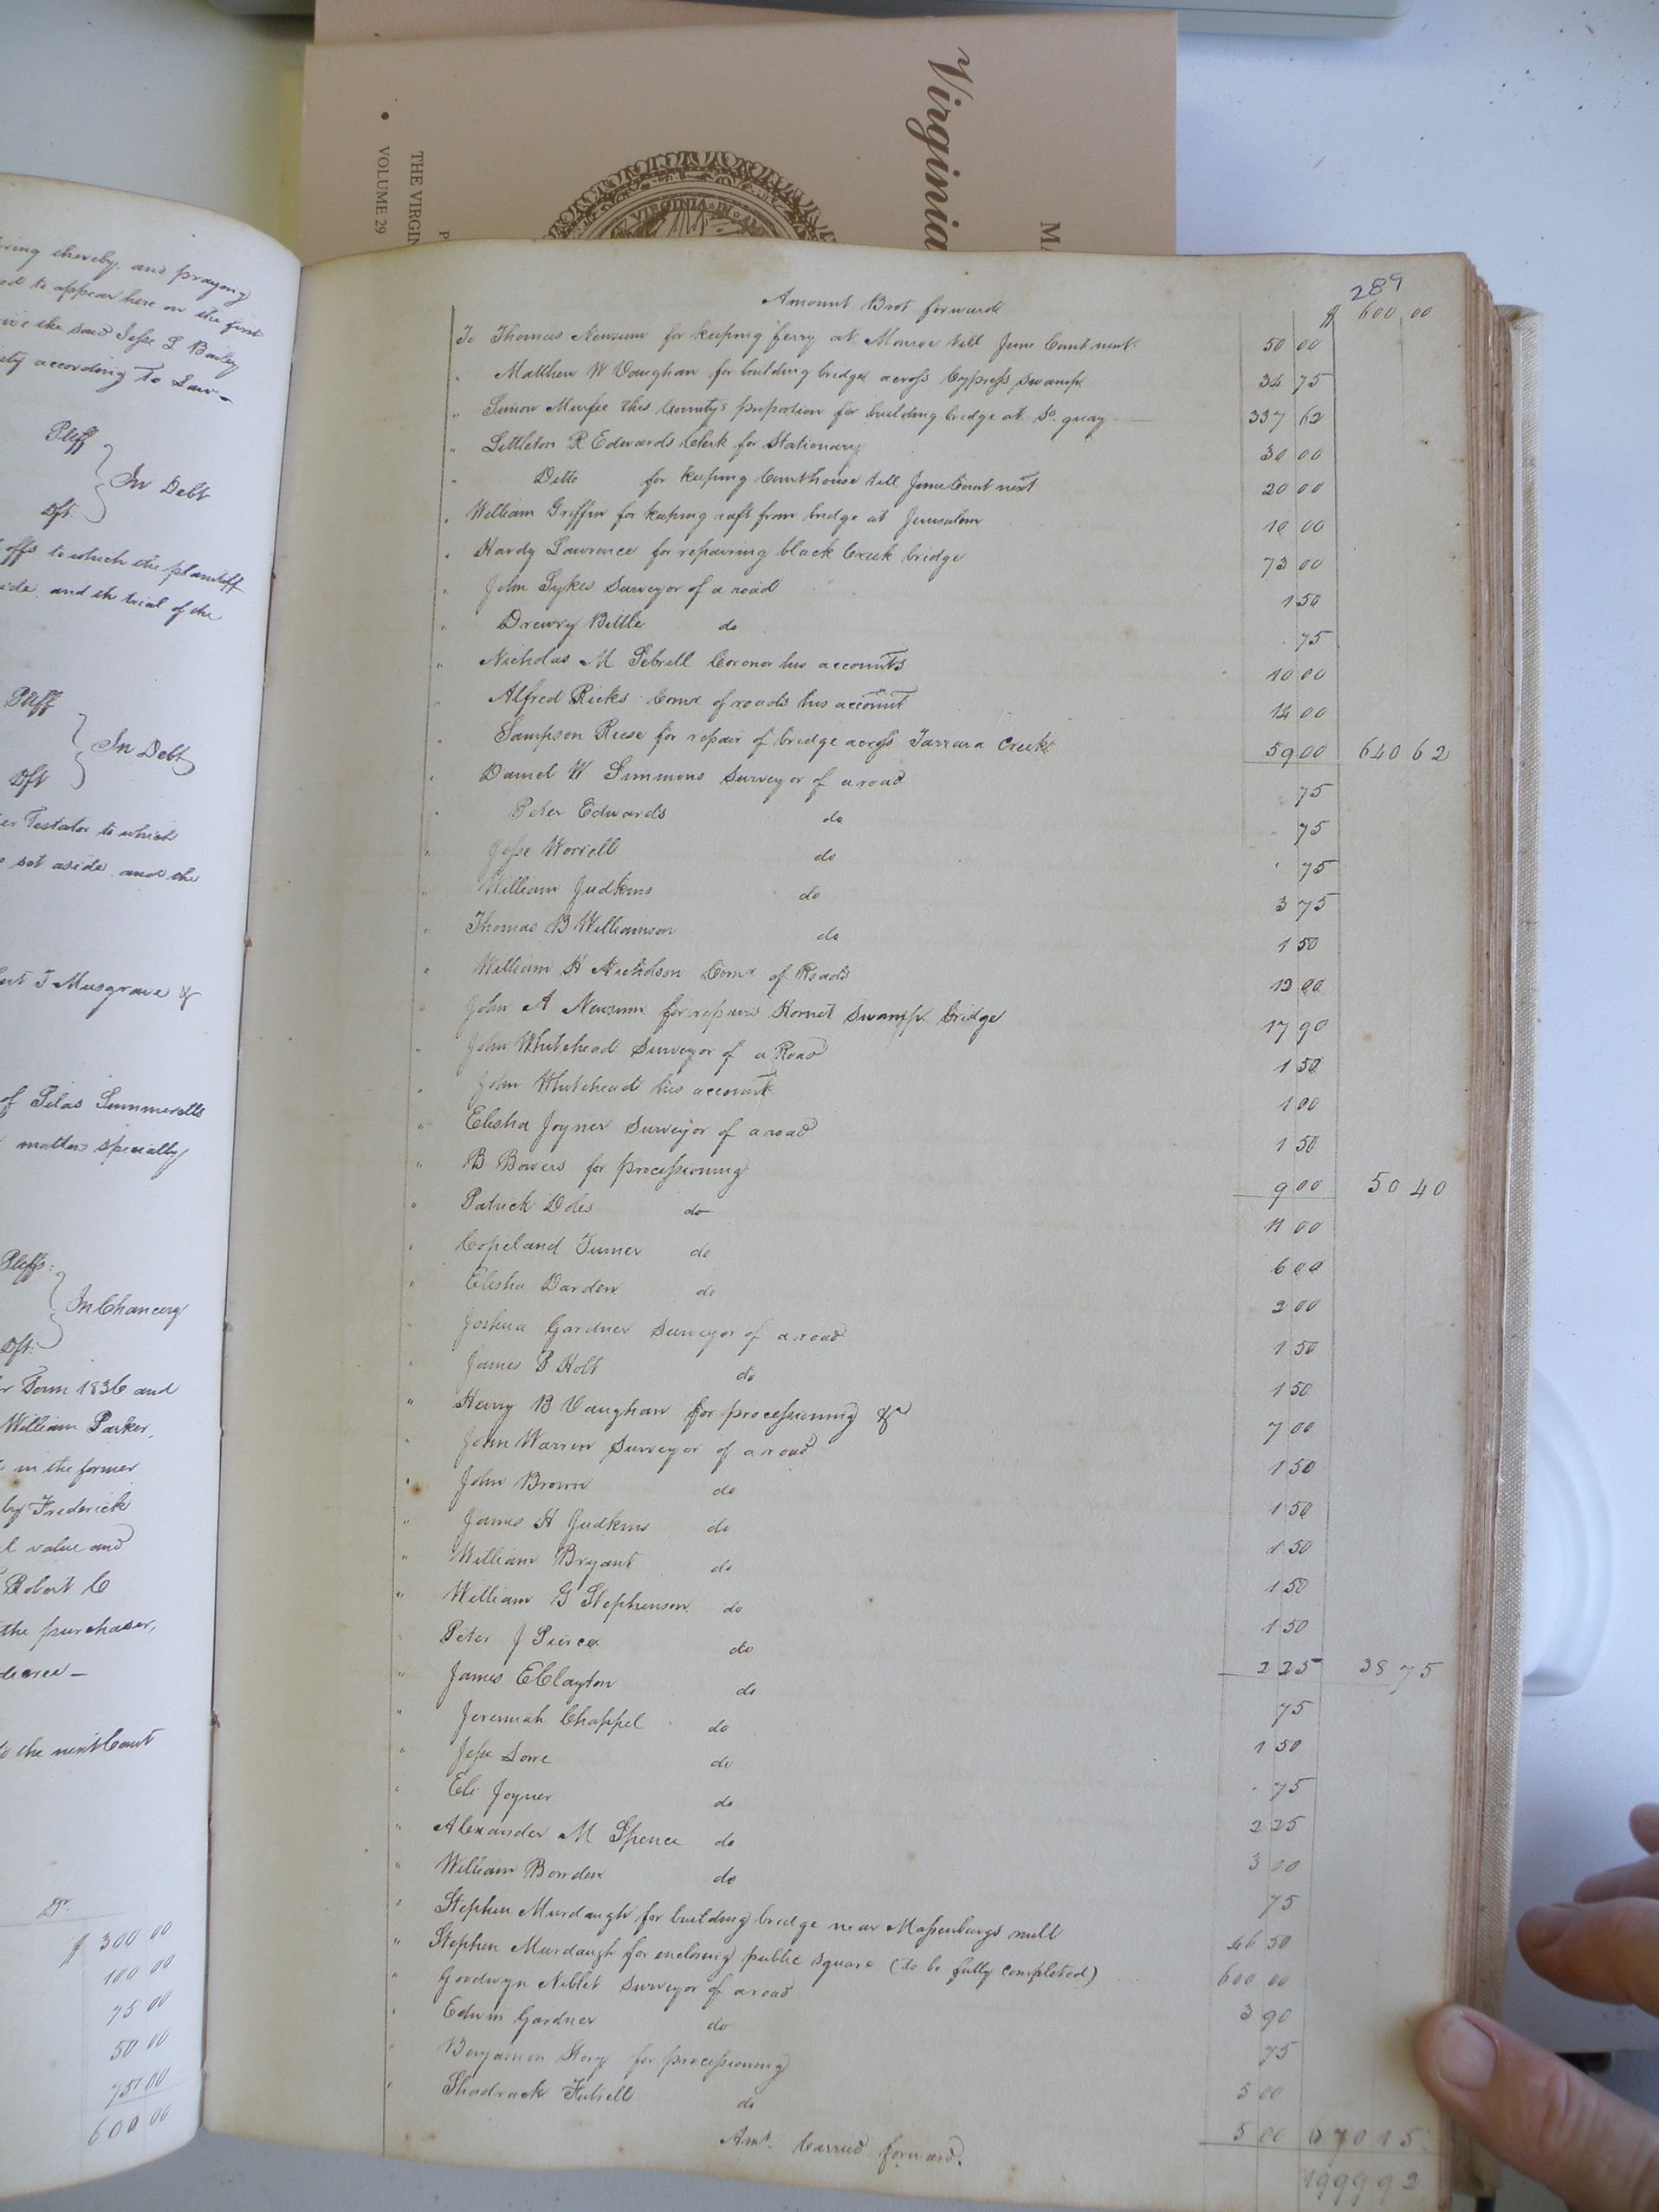 Virginia
THE VIRGIN
VOLUME 29
VIRGINIA IN
ring thereby and praying
ed to appear here on the first
the said Jesse L Bailey
according to Law —
Plff
In Debt
Dft
offs to which the plaintiff
and the trial of the
Plff
In Debt
Dft
Testator to which
set aside and the
T Musgrave &
of Silas Summerells
matters specially
Plffs:
In Chancery
Dft:
Term 1836 and
William Parker,
in the former
by Frederick
value and
Robert C
the purchaser,
decree —
to the next Court
Dr.
$ 300 00
100 00
75 00
50 00
75 00
600 00
289
Amount Brot forward $ 600 00
To Thomas Newsum for keeping ferry at Monroe till June Court next 50 00
" Matthew W Vaughan for building bridge across Cypress Swamp 34 75
" Simon Murfee this County's proportion for building bridge at So. quay 337 62
" Littleton R Edwards Clerk for Stationary 30 00
" Ditto for keeping Courthouse till June Court next 20 00
" William Griffin for keeping raft from bridge at Jerusalem 10 00
" Hardy Lawrence for repairing black Creek bridge 73 00
" John Sykes Surveyor of a road 1 50
" Drewry Bittle do 75
" Nicholas M Sebrell Coronor his accounts 10 00
" Alfred Ricks Comr of roads his account 14 00
" Sampson Reese for repair of bridge across Tarrara Creek 59 00 640 62
" Daniel W Simmons Surveyor of a road 75
" Peter Edwards do 75
" Jesse Worrell do 75
" William Judkins do 3 75
" Thomas B Williamson do 1 50
" William H Nicholson Comr of Roads 12 00
" John A Newsum for repairs Hornet Swamp bridge 17 90
" John Whitehead Surveyor of a Road 1 50
" John Whitehead his account 1 00
" Elisha Joyner Surveyor of a road 1 50
" B Bowers for processioning 9 00 50 40
" Patrick Doles do 11 00
" Copeland Turner do 6 00
" Elisha Darden do 2 00
" Joshua Gardner Surveyor of a road 1 50
" James P Holt do 1 50
" Henry B Vaughan for processioning & 7 00
" John Warren Surveyor of a road 1 50
" John Brown do 1 50
" James H Judkins do 1 50
" William Bryant do 1 50
" William G Stephenson do 1 50
" Peter J Pierce do 2 25 38 75
" James E Clayton do 75
" Jeremiah Chappel do 1 50
" Jesse Lowe do 75
" Eli Joyner do 2 25
" Alexander M Spence do 3 00
" William Bowden do 75
" Stephen Murdaugh for building bridge near Massenburgs mill 46 50
" Stephen Murdaugh for enclosing public square (to be fully completed) 600 00
" Goodwyn Niblet Surveyor of a road 3 90
" Edwin Gardner do 75
" Benjamin Story for processioning 5 00
" Shadrack Futrell do 5 00 670 15
Amt. Carried forward. 1999 92